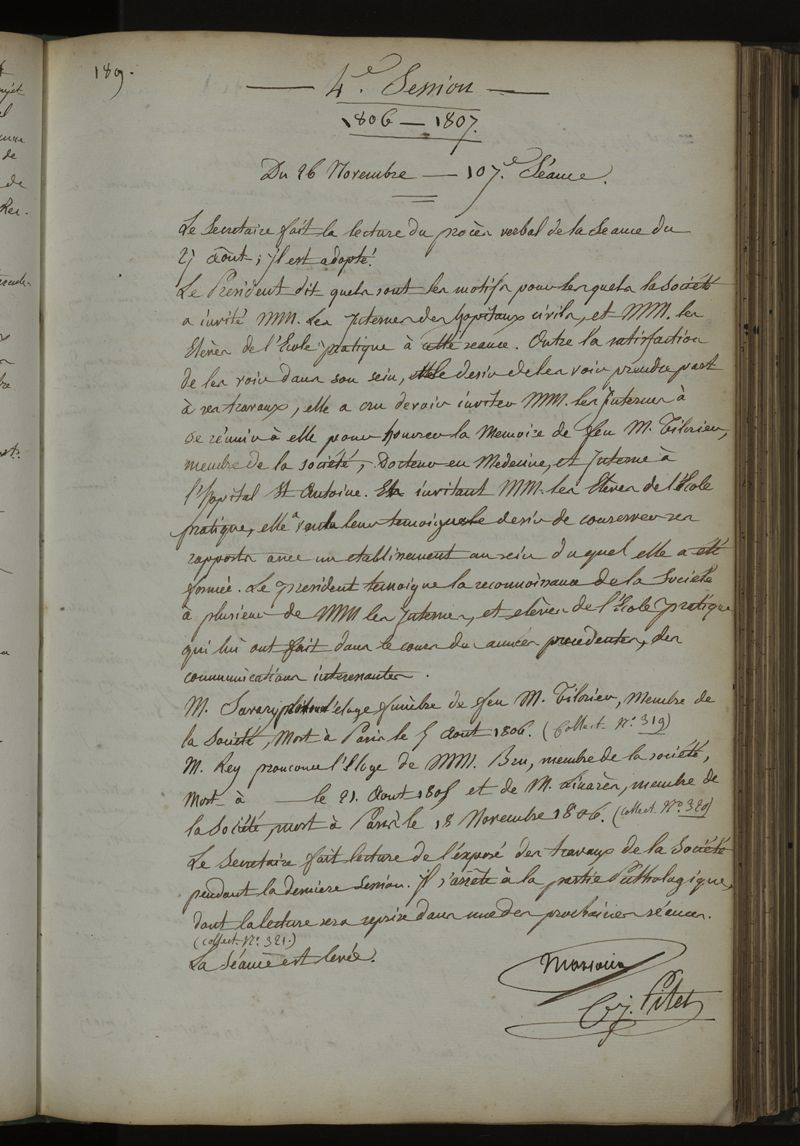 189.
4.e Session
1806 — 1807.
Du 26 Novembre — 107.e Séance.
Le Secretaire fait la lecture du procès verbal de la Seance du
27 Aôut ; il est adopté.
Le President dit quels sont les motifs pour lesquels la Société
a invité MM. Les Internes des hopitaux civils, et MM. les
Elèves de l'Ecole pratique à cette seance. Outre la satisfaction
de les voir dans son sein, et le desir de les voir prendre part
à ses travaux, elle a cru devoir inviter MM. les Internes à
se réunir à elle pour honorer la Memoire de feu M. Tilorier,
membre de la société, Docteur en Medecine, et Interne à
l'hopital St Antoine. En invitant MM. les Elèves de l'Ecole
pratique, elle a voulu leur temoigner le desir de conserver ses
rapports avec un etablissement au sein duquel elle a eté
formée. Le president temoigne la reconnoissance de la Société
à plusieurs de MM les Internes, et elèves de l'Ecole pratique
qui lui ont fait dans le cours des années precedentes, des
communications interessantes.
M. Savary l'eloge funèbre de feu M. Tilorier, Membre de
la Société, Mort à Paris le 5 Aout 1806. (Collect. No. 319)
M. Rey prononce l'Eloge de MM. Bru, membre de la société,
Mort à — le 21. Aout 1805 et de M. Linarès, membre de
la Société, mort à Paris le 18 Novembre 1806. (Collect. No. 320)
Le Secretaire fait lecture de l'exposé des travaux de la Société
pendant la derniere Session. Il s'arrête à la partie Pathologique,
dont la lecture sera reprise dans une des prochaines séances.
(Collect. No. 321.)
La Séance est levée.